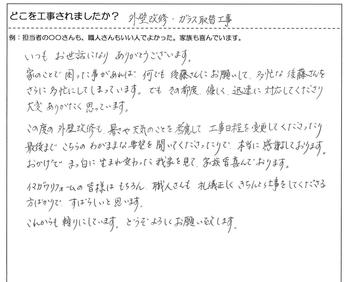 どこを工事されましたか？ 外壁改修・ガラス取替工事
例：担当者の〇〇さんも、職人さんもいい人でよかった。家族も喜んでいます。
いつも お世話になり ありがとうございます。
家のことで 困った事があれば 何でも 後藤さんに お願いして、多忙な 後藤さんを
さらに 多忙にしてしまっています。でも その都度、優しく、迅速に 対応してくださり
大変 ありがたく 思っています。
この度の 外壁改修も 暑さや 天気のことを 考慮して 工事日程を 変更してくださったり
最後まで こちらの わがままな 要望を 聞いてくださったりで 本当に 感謝しております。
おかげで まっ白に 生まれ変わった 我家を 見て、家族皆喜んでおります。
イマガワリフォームの 皆様は もちろん、職人さんも 礼儀正しく きちんと仕事をしてくださる
方ばかりで すばらしいと 思います。
これからも 頼りにしています。どうぞよろしくお願い致します。